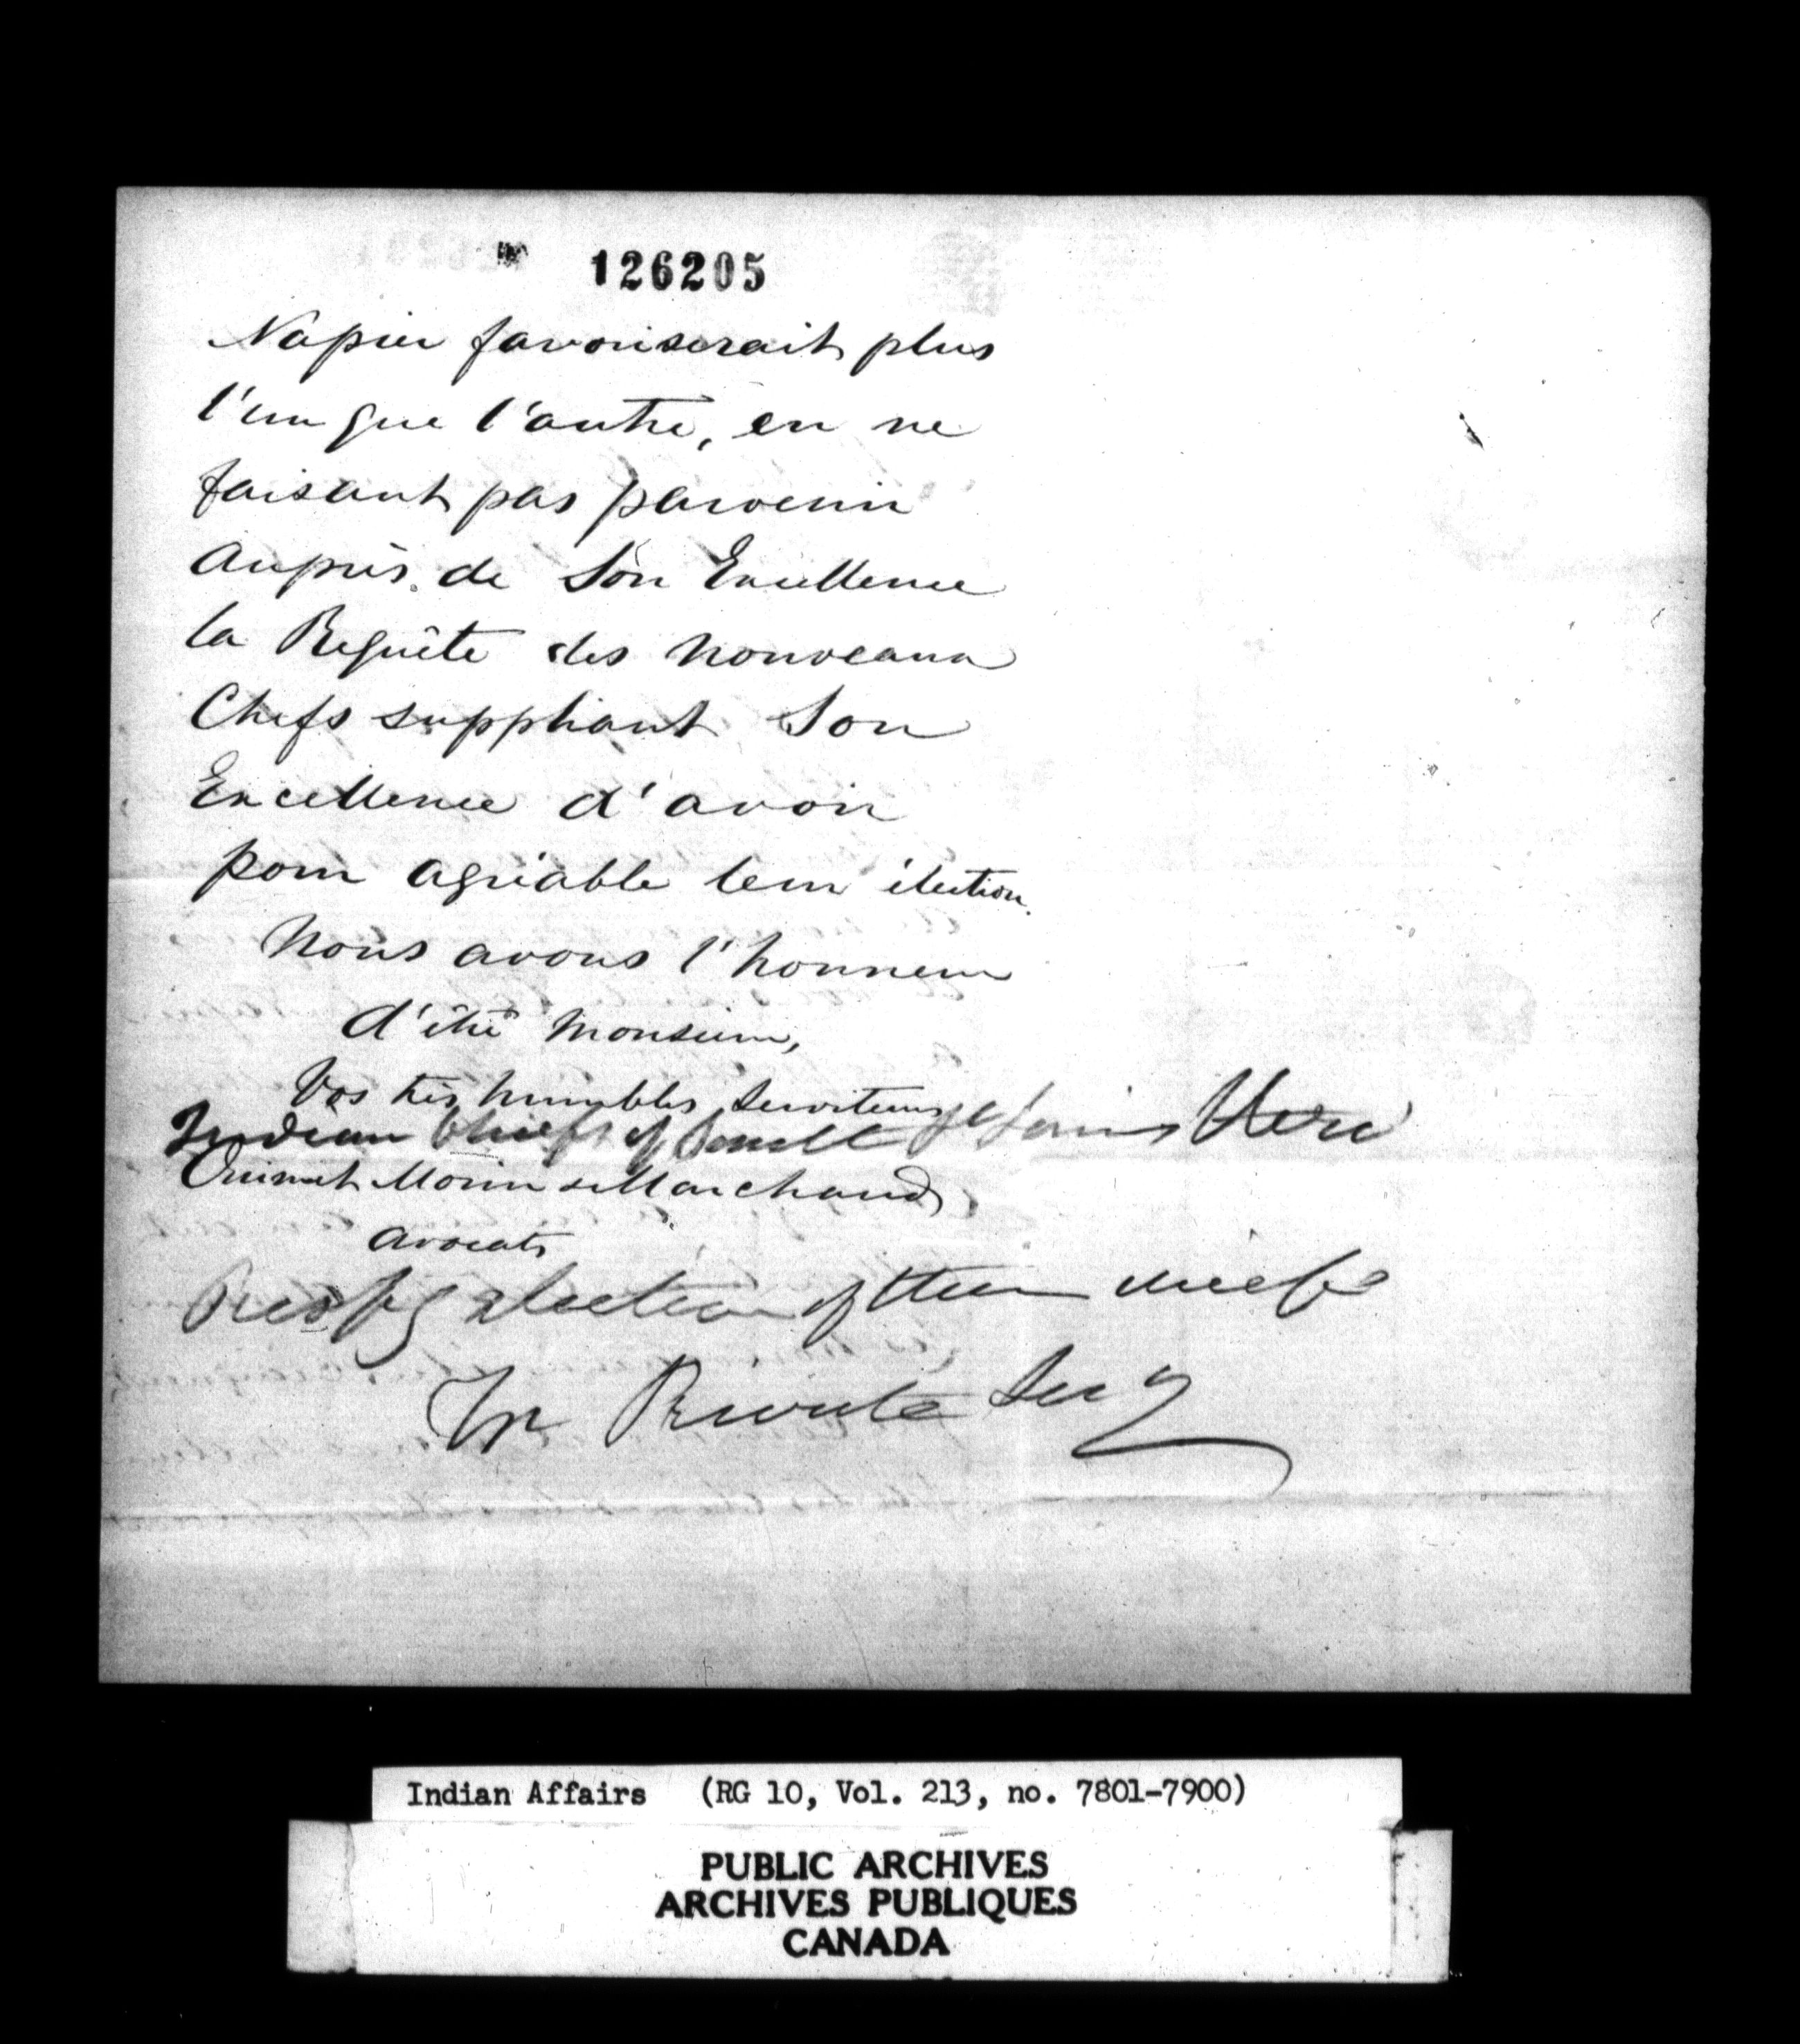 126205
Napier favoriserait plus
l'un que l'autre, en ne
faisant pas parvenir
auprès de Son Excellence
la Requête des nouveaux
Chefs suppliant Son
Excellence d'avoir
pour agréable leur élection.
Nous avons l'honneur
d'être Monsieur,
Vos très humbles Serviteurs
Indian Chiefs of Sault St Louis
Ouimet Morin & Marchand
avocats
Respg election of their chiefs
Private Secy
Indian Affairs (RG 10, Vol. 213, no. 7801-7900)
PUBLIC ARCHIVES
ARCHIVES PUBLIQUES
CANADA